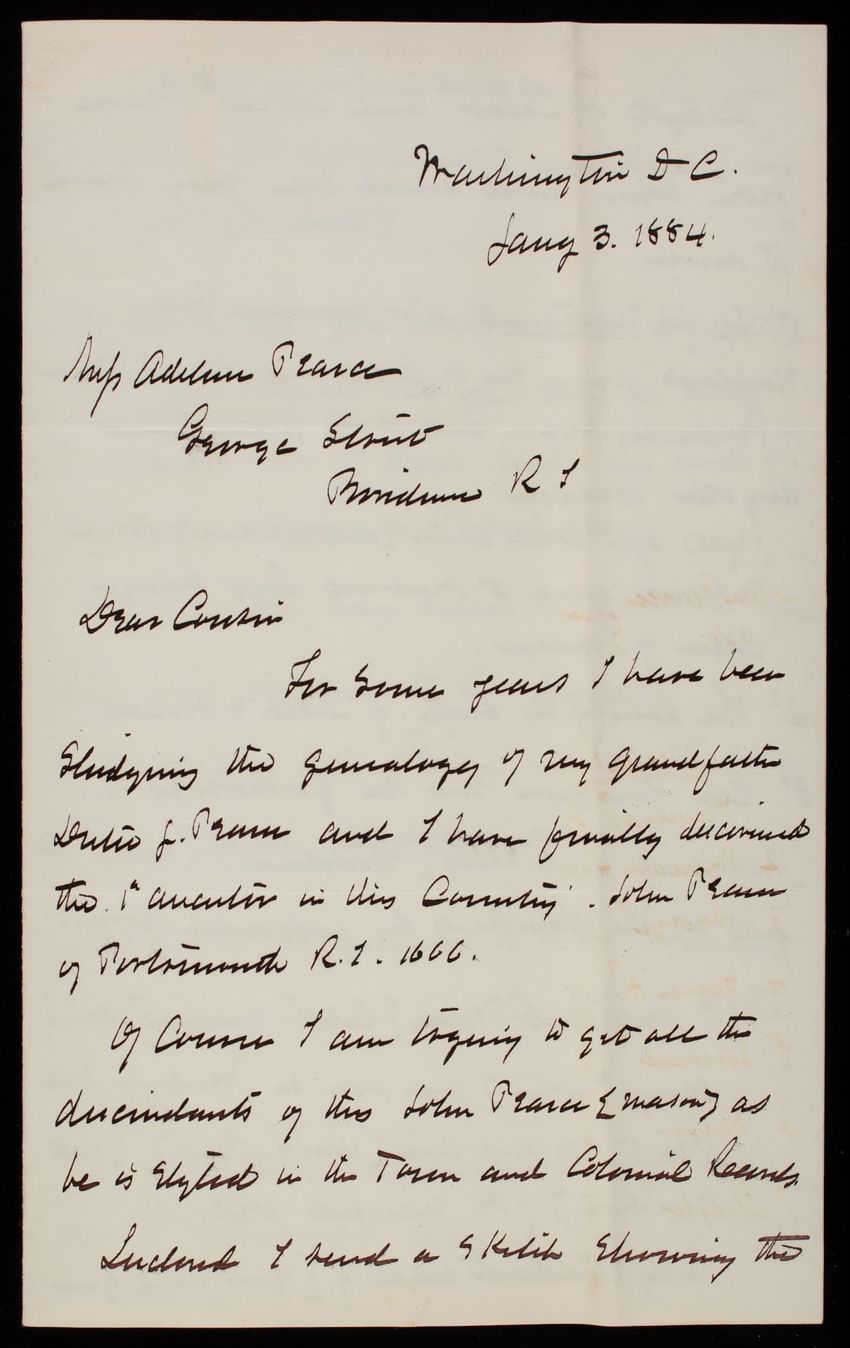 Washington D C.
Jany 3. 1884.
Miss Adeline Pearce
George Street
Providence R I
Dear Cousin
For some years I have been
studying the genealogy of my grandfather
Dutee J. Pearce and I have finally discovered
the 1st ancestor in this Country. John Pearce
of Portsmouth R. I. 1666.
Of Course I am trying to get all the
descendants of this John Pearce {mason} as
he is styled in the Town and Colonial Records
Inclosed I send a sketch showing the